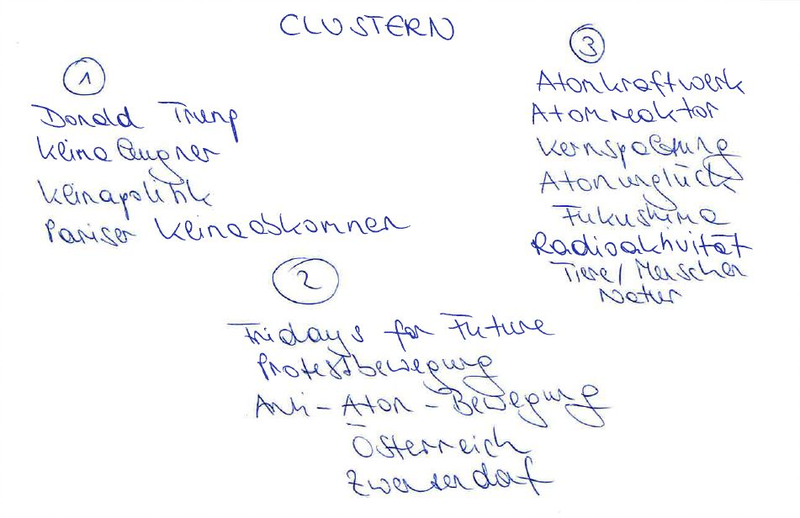 CLUSTERN
1
Donald Trump
Klimaleugner
Klimapolitik
Pariser Klimaabkommen
2
Fridays for Future
Protestbewegung
Anti-Atom-Bewegung
Österreich
Zwentendorf
3
Atomkraftwerk
Atomreaktor
Kernspaltung
Atomunglück
Fukushima
Radioaktivität
Tiere/Menschen
Natur